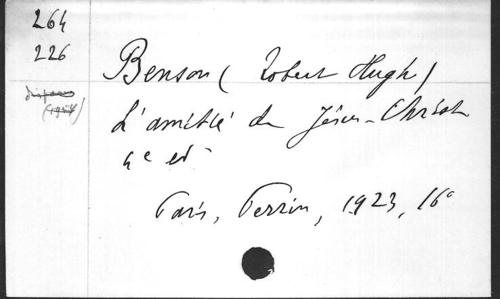 264
226
disparu
(1954)
Benson (Robert Hugh)
L'amitié de Jésus-Christ
4e ed
Paris, Perrin, 1923, 16°